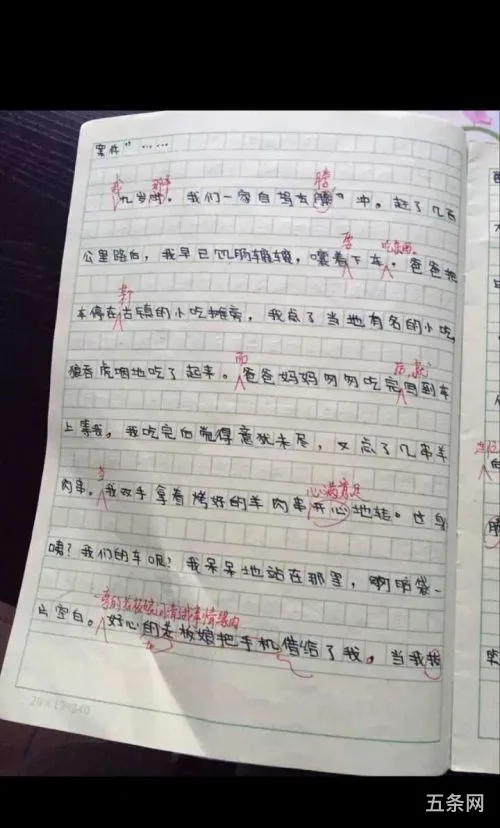 案件”……
我 那年 腾
九岁时。我们一家自驾去腾”冲。赶了几百
要 吃东西。
公里路后，我早已饥肠辘辘，嚷着下车。爸爸把
车
车停在古镇的小吃摊旁，我点了当地有名的小吃
而 后，就
狼吞虎咽地吃了起来。爸爸妈妈匆匆吃完回到车
上等我。我吃完后觉得意犹未尽，又点了几串羊
当 心满意足
肉串。我双手拿着烤好的羊肉串开心地转。
咦？我们的车呢？我呆呆地站在那里，脑袋一
旁的老板娘问清楚事情缘由
片空白。好心的老板娘把手机借给了我。当我我
20×17=340
五条网